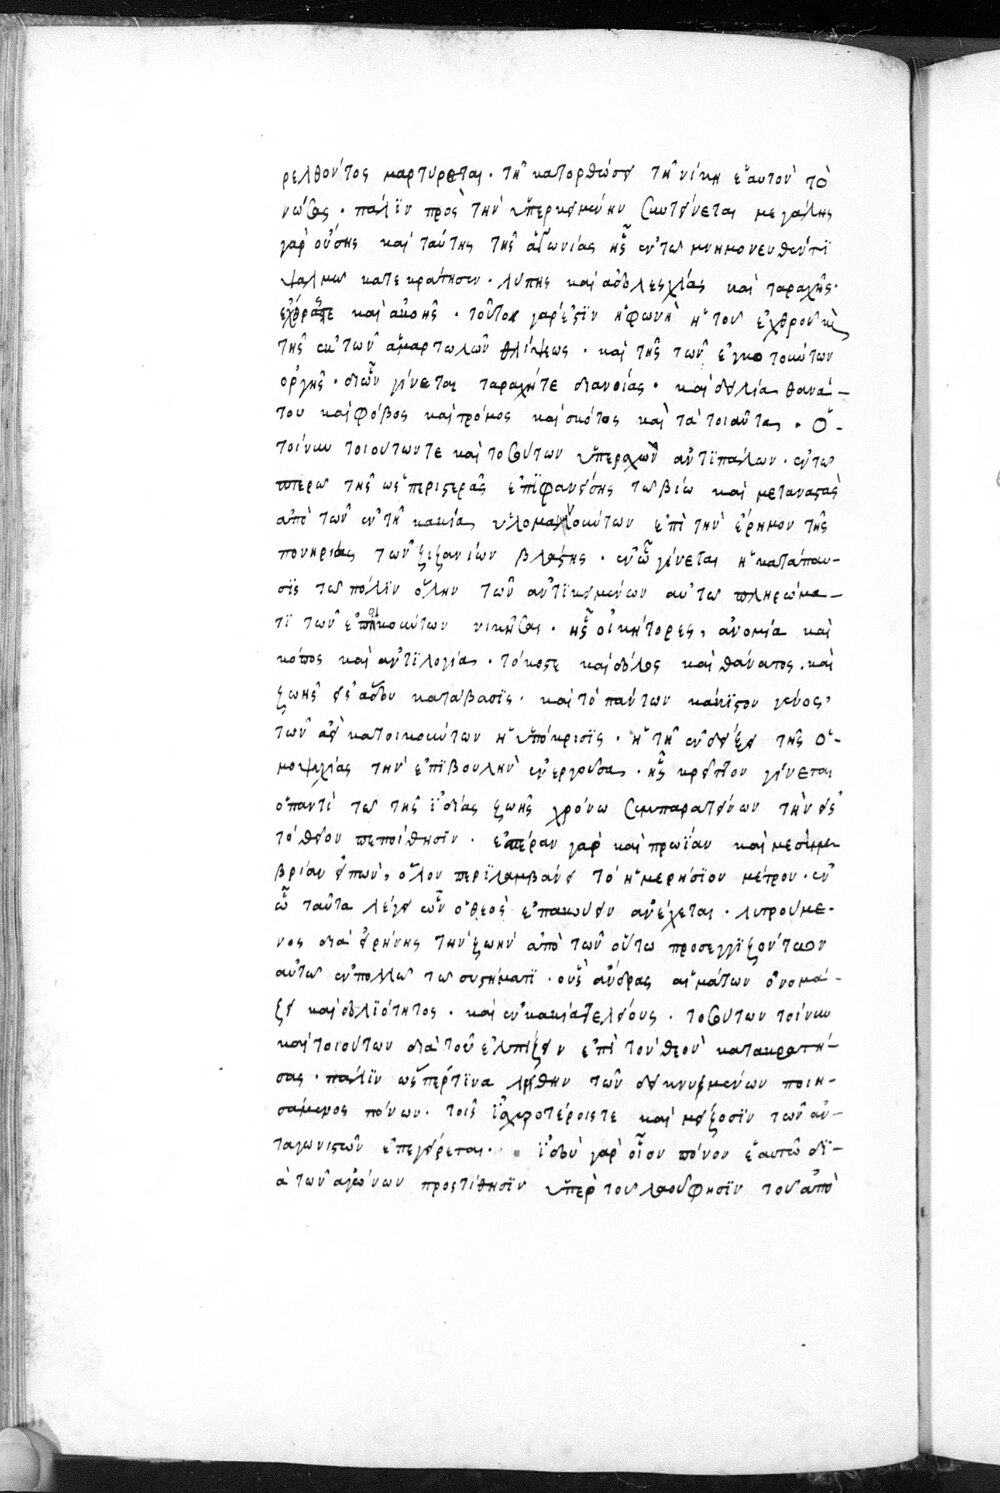 ρελθόντος μαρτύρεται· τῆ κατορθώσει τῆ νίκη ἑαυτὸν τὸ
νώσας· πάλϊν πρὸς τὴν ὑπερκειμένην συντείνεται μεγάλης
γὰρ οὔσης καὶ ταύτης τῆς ἀγωνίας ἧς ἐν τῶ μνημονευθέντϊ
ψαλμῶ κατεκράτησεν· λύπης καὶ ἀδολεσχίας καὶ ταραχῆς·
ἔχθρας τε καὶ ἀκοῆς· τοῦτο γάρ ἐστϊν ἡ φωνὴ ἡ τοῦ ἐχθροῦ καὶ
τῆς ἐκ τῶν ἁμαρτωλῶν θλίψεως· καὶ τῆς τῶν ἐγκοτούντων
ὀργῆς· δι ὧν γίνεται ταραχή τε διανοίας· καὶ δειλία θανά-
του καὶ φόβος καὶ τρόμος καὶ σκότος καὶ τὰ τοιαῦτα· ὅ-
τοίνυν τοιούτων τε καὶ τοσούτων ὑπερσχὼν ἀντϊπάλων· ἐν τῶ
πτέρω τῆς ὡς περιστερᾶς ἐπϊφανείσης τῶ βίω καὶ μεταναστὰς
ἀπὸ τῶν ἐν τῆ κακία ὑλομανούντων ἐπὶ τὴν ἔρημον τῆς
πονηρίας τῶν ζιζανίων βλάστης· ἐν ὧ γίνεται ἡ κατάπαυ-
σϊς τῶ πόλϊν ὅλην τῶν ἀντϊκειμένων αὐτῶ πληρώμα-
τϊ τῶν ἐποικούντων νικῆσαι· ἧς οἰκήτορες, ἀνομία καὶ
κόπος καὶ ἀντϊλογία· τόκος τε καὶ δόλος καὶ θάνατος· καὶ
ζωῆς εἰς ἅδου κατάβασϊς· καὶ τὸ πάντων κάκϊστον γένος,
τῶν ἀεὶ κατοικούντων ἡ ὑπόκρισϊς· ἡ τῆ ἐνδείξει τῆς ὁ-
μοψυχίας τὴν ἐπϊβουλὴν ἐνεργοῦσα· ἧς κρεῖττον γίνεται
ὁ παντὶ τῶ τῆς ϊδίας ζωῆς χρόνω συμπαρατείνων τὴν εἰς
τὸ θεῖον πεποίθησϊν· ἑσπέραν γὰρ καὶ πρωΐαν καὶ μεσημ
βρίαν εἰπὼν, ὅλον περϊλαμβάνει τὸ ἡμερήσϊον μέτρον· ἐν
ὧ ταῦτα λέγει ὧν ὁ θεὸς ἐπακούειν ἀνέχεται· λυτρούμε-
νος διὰ εἰρήνης τὴν ζωὴν ἀπὸ τῶν οὕτω προσεγγϊζόντων
αὐτῶ ἐν πολλῶ τῶ συστήματϊ· οὓς ἄνδρας αἱμάτων ὀνομά-
ζει καὶ δολϊότητος· καὶ ἐν κακία τελείους· τοσούτων τοίνυν
καὶ τοιούτων διὰ τοῦ ἐλπίζειν ἐπὶ τὸν θεὸν κατακρατή-
σας· πάλϊν ὥσπερ τϊνα λήθην τῶν δεικνυμένων ποιη-
σάμενος πόνων· τοῖς ϊσχυροτέροις τε καὶ μείζοσϊν τῶν ἀν-
ταγωνιστῶν ἐπεγείρεται· ϊδοὺ γὰρ οἷον πόνον ἑαυτῶ δϊ-
ὰ τῶν ἀγώνων προστίθησϊν ὑπὲρ τοῦ λαοῦ φησϊν τοῦ ἀπὸ